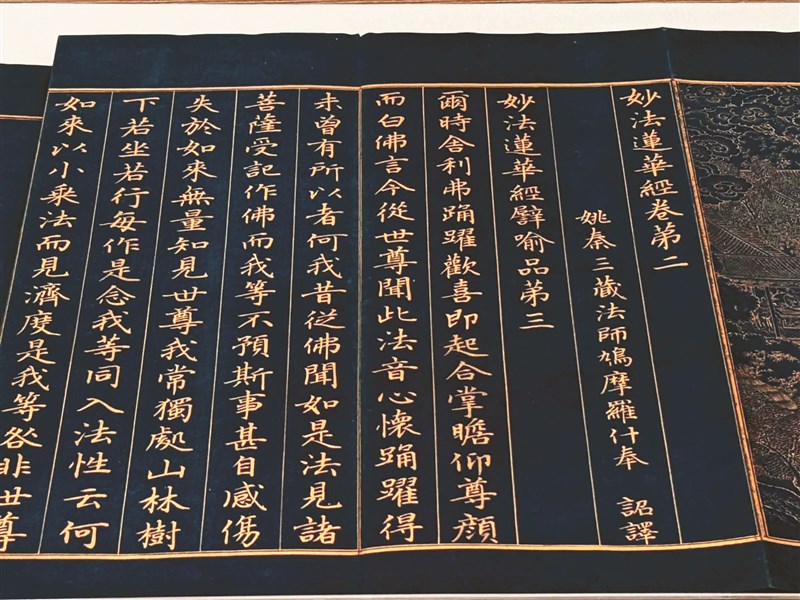 妙法蓮華經卷第二
姚秦三藏法師鳩摩羅什奉 詔譯
妙法蓮華經譬喻品第三
爾時舍利弗踊躍歡喜即起合掌瞻仰尊顏
而白佛言今從世尊聞此法音心懷踊躍得
未曾有所以者何我昔從佛聞如是法見諸
菩薩受記作佛而我等不預斯事甚自感傷
失於如來無量知見世尊我常獨處山林樹
下若坐若行每作是念我等同入法性云何
如來以小乘法而見濟度是我等咎非世尊